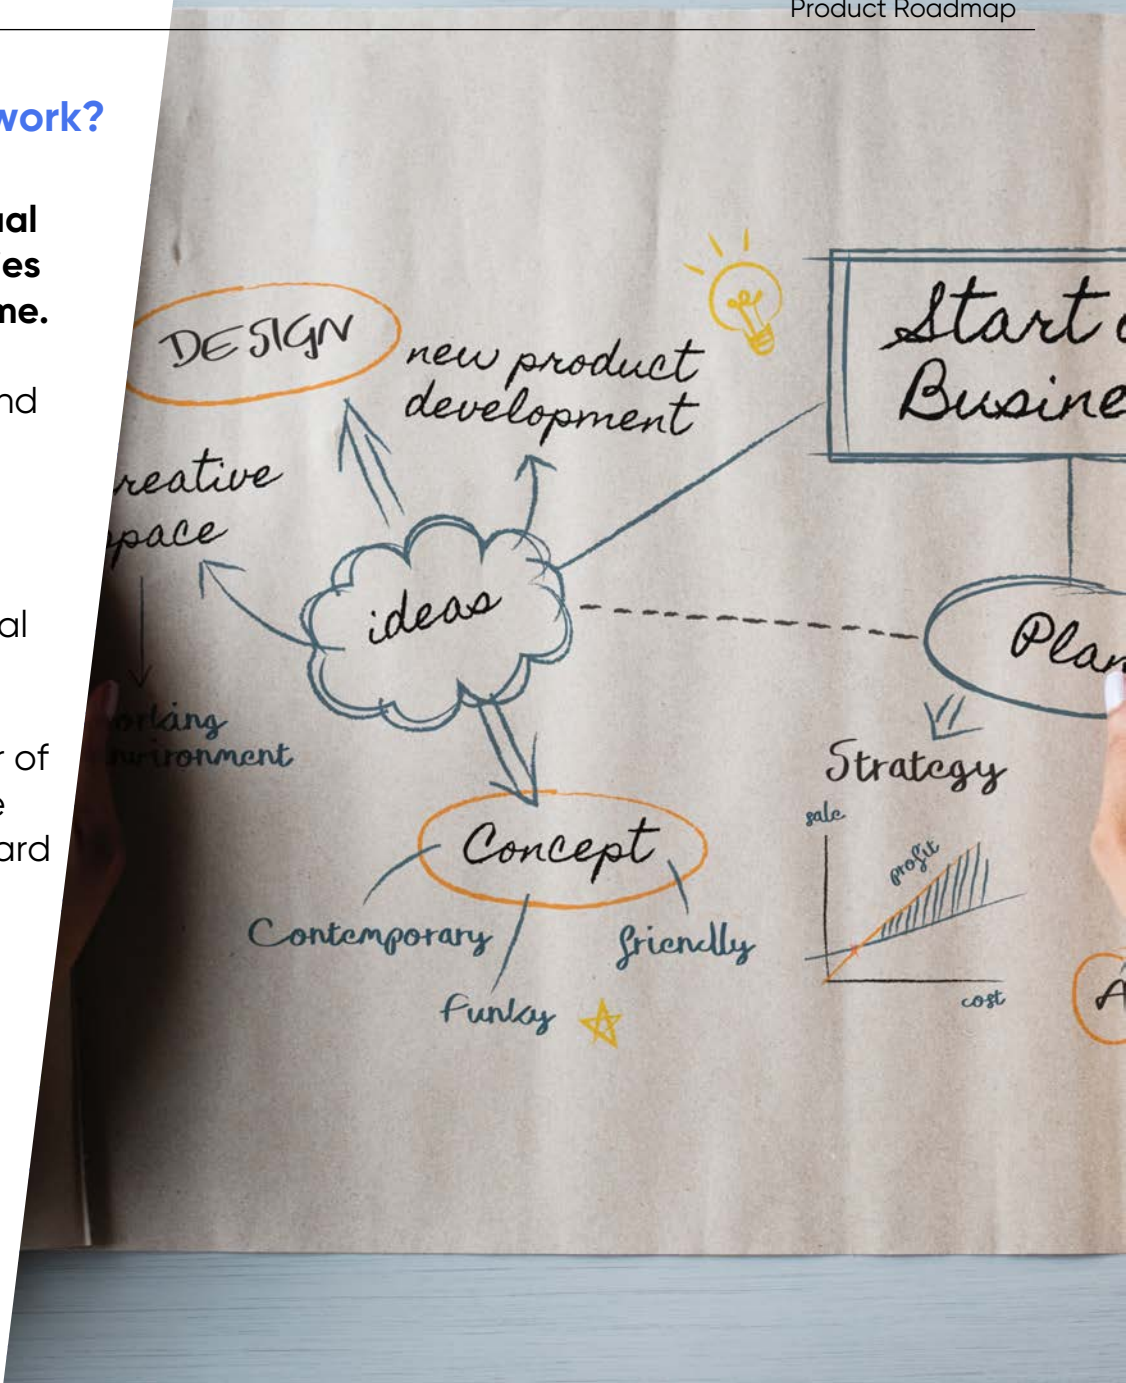 Product Roadmap
work?
ual
ies
me.
nd
al
r of
e
ard
DESIGN
new product
development
Start
Busine
reative
pace
ideas
Plan
orking
nvironment
Strategy
sale
profit
cost
Concept
Contemporary
friendly
Funky
A